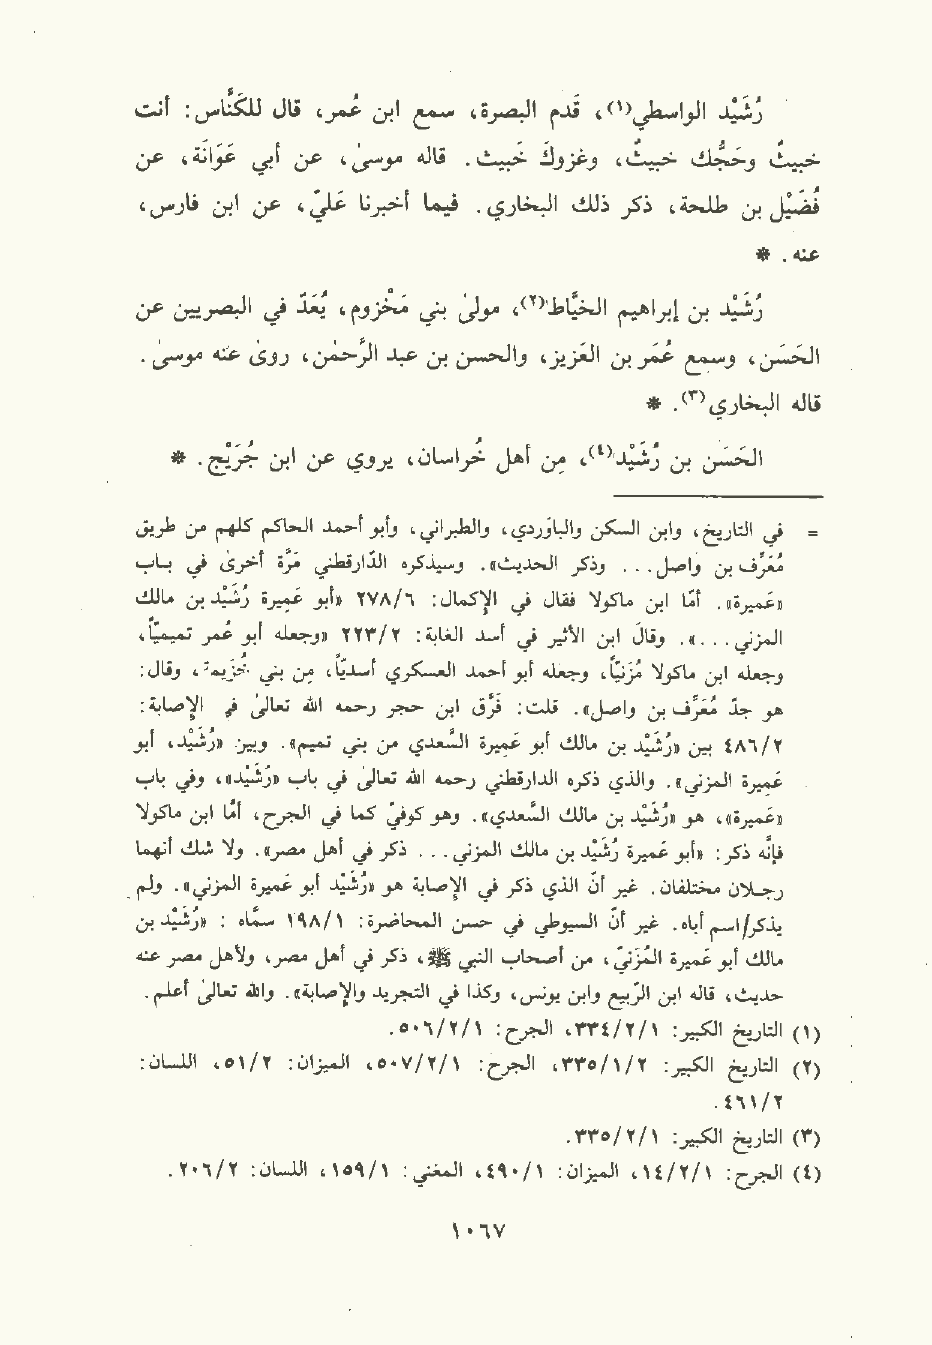 رُشَيْد الواسطي(١)، قَدم البصرة، سمع ابن عُمر، قال للكنَّاس: أنت
خبيثٌ وحَجُّك خبيثٌ، وغزوكَ خَبيث. قاله موسىٰ، عن أبي عَوَانَة، عن
فُضَيْل بن طلحة، ذكر ذلك البخاري. فيما أخبرنا عَليّ، عن ابن فارس،
عنه. *
رُشَيْد بن إبراهيم الخيَّاط(٢)، مولىٰ بني مَخْزوم، يُعَدّ في البصريين عن
الحَسَن، وسمع عُمَر بن العَزيز، والحسن بن عبد الرَّحمٰن، روىٰ عنه موسىٰ.
قاله البخاري(٣). *
الحَسَن بن رُشَيْد(٤)، مِن أهل خُراسان، يروي عن ابن جُرَيْج. *
= في التاريخ، وابن السكن والبَاوَردي، والطبراني، وأبو أحمد الحاكم كلهم من طريق
مُعَرِّف بن واصل... وذكر الحديث». وسيذكره الدَّارقطني مَرَّة أخرىٰ في باب
«عَميرة». أمّا ابن ماكولا فقال في الإكمال: ٢٧٨/٦ «أبو عَمِيرة رُشَيْد بن مالك
المزني...». وقالَ ابن الأثير في أسد الغابة: ٢٢٣/٢ «وجعله أبو عُمر تميميّاً،
وجعله ابن ماكولا مُزَنيّاً، وجعله أبو أحمد العسكري أسديّاً، مِن بني خُزيمة، وقال:
هو جدّ مُعَرِّف بن واصل». قلت: فَرَّق ابن حجر رحمه الله تعالىٰ في الإصابة:
٤٨٦/٢ بين «رُشَيْد بن مالك أبو عَمِيرة السَّعدي من بني تميم». وبين «رُشَيْد، أبو
عَمِيرة المزني». والذي ذكره الدارقطني رحمه الله تعالىٰ في باب «رُشَيْد»، وفي باب
«عَميرة»، هو «رُشَيْد بن مالك السَّعدي». وهو كوفيّ كما في الجرح، أمّا ابن ماكولا
فإنّه ذكر: «أبو عميرة رُشَيْد بن مالك المزني... ذكر في أهل مصر». ولا شك أنهما
رجلان مختلفان. غير أنّ الذي ذكر في الإصابة هو «رُشَيْد أبو عميرة المزني». ولم
يذكر/اسم أباه. غير أنّ السيوطي في حسن المحاضرة: ١٩٨/١ سمَّاه : «رُشَيْد بن
مالك أبو عميرة المُزَنيّ، من أصحاب النبي ﷺ، ذكر في أهل مصر، ولأهل مصر عنه
حديث، قاله ابن الرَّبيع وابن يونس، وكذا في التجريد والإصابة». والله تعالىٰ أعلم.
(١) التاريخ الكبير: ٣٣٤/٢/١، الجرح: ٥٠٦/٢/١.
(٢) التاريخ الكبير: ٣٣٥/١/٢، الجرح: ٥٠٧/٢/١، الميزان: ٥١/٢، اللسان:
٤٦١/٢.
(٣) التاريخ الكبير: ٣٣٥/٢/١.
(٤) الجرح: ١٤/٢/١، الميزان: ٤٩٠/١، المغني: ١٥٩/١، اللسان: ٢٠٦/٢.
١٠٦٧